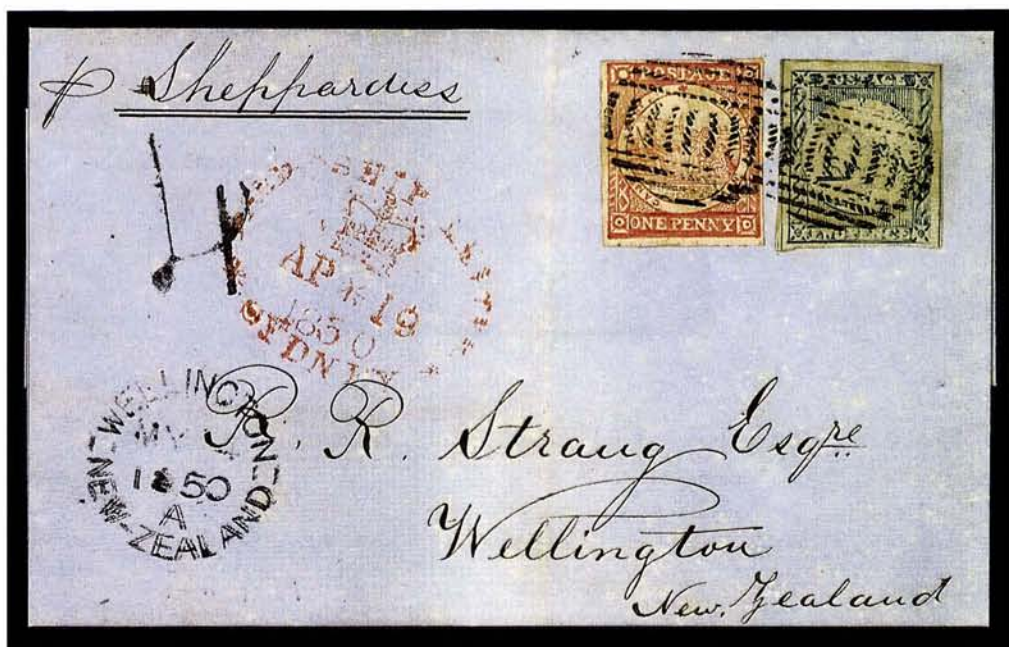 p Sheppardess
POSTAGE
ONE PENNY
14
SHIP LETTER
AP * 19
1850
SYDNEY
WELLINGTON
MY
1850
A
NEW-ZEALAND
R. R. Strang Esqre
Wellington
New, Zealand